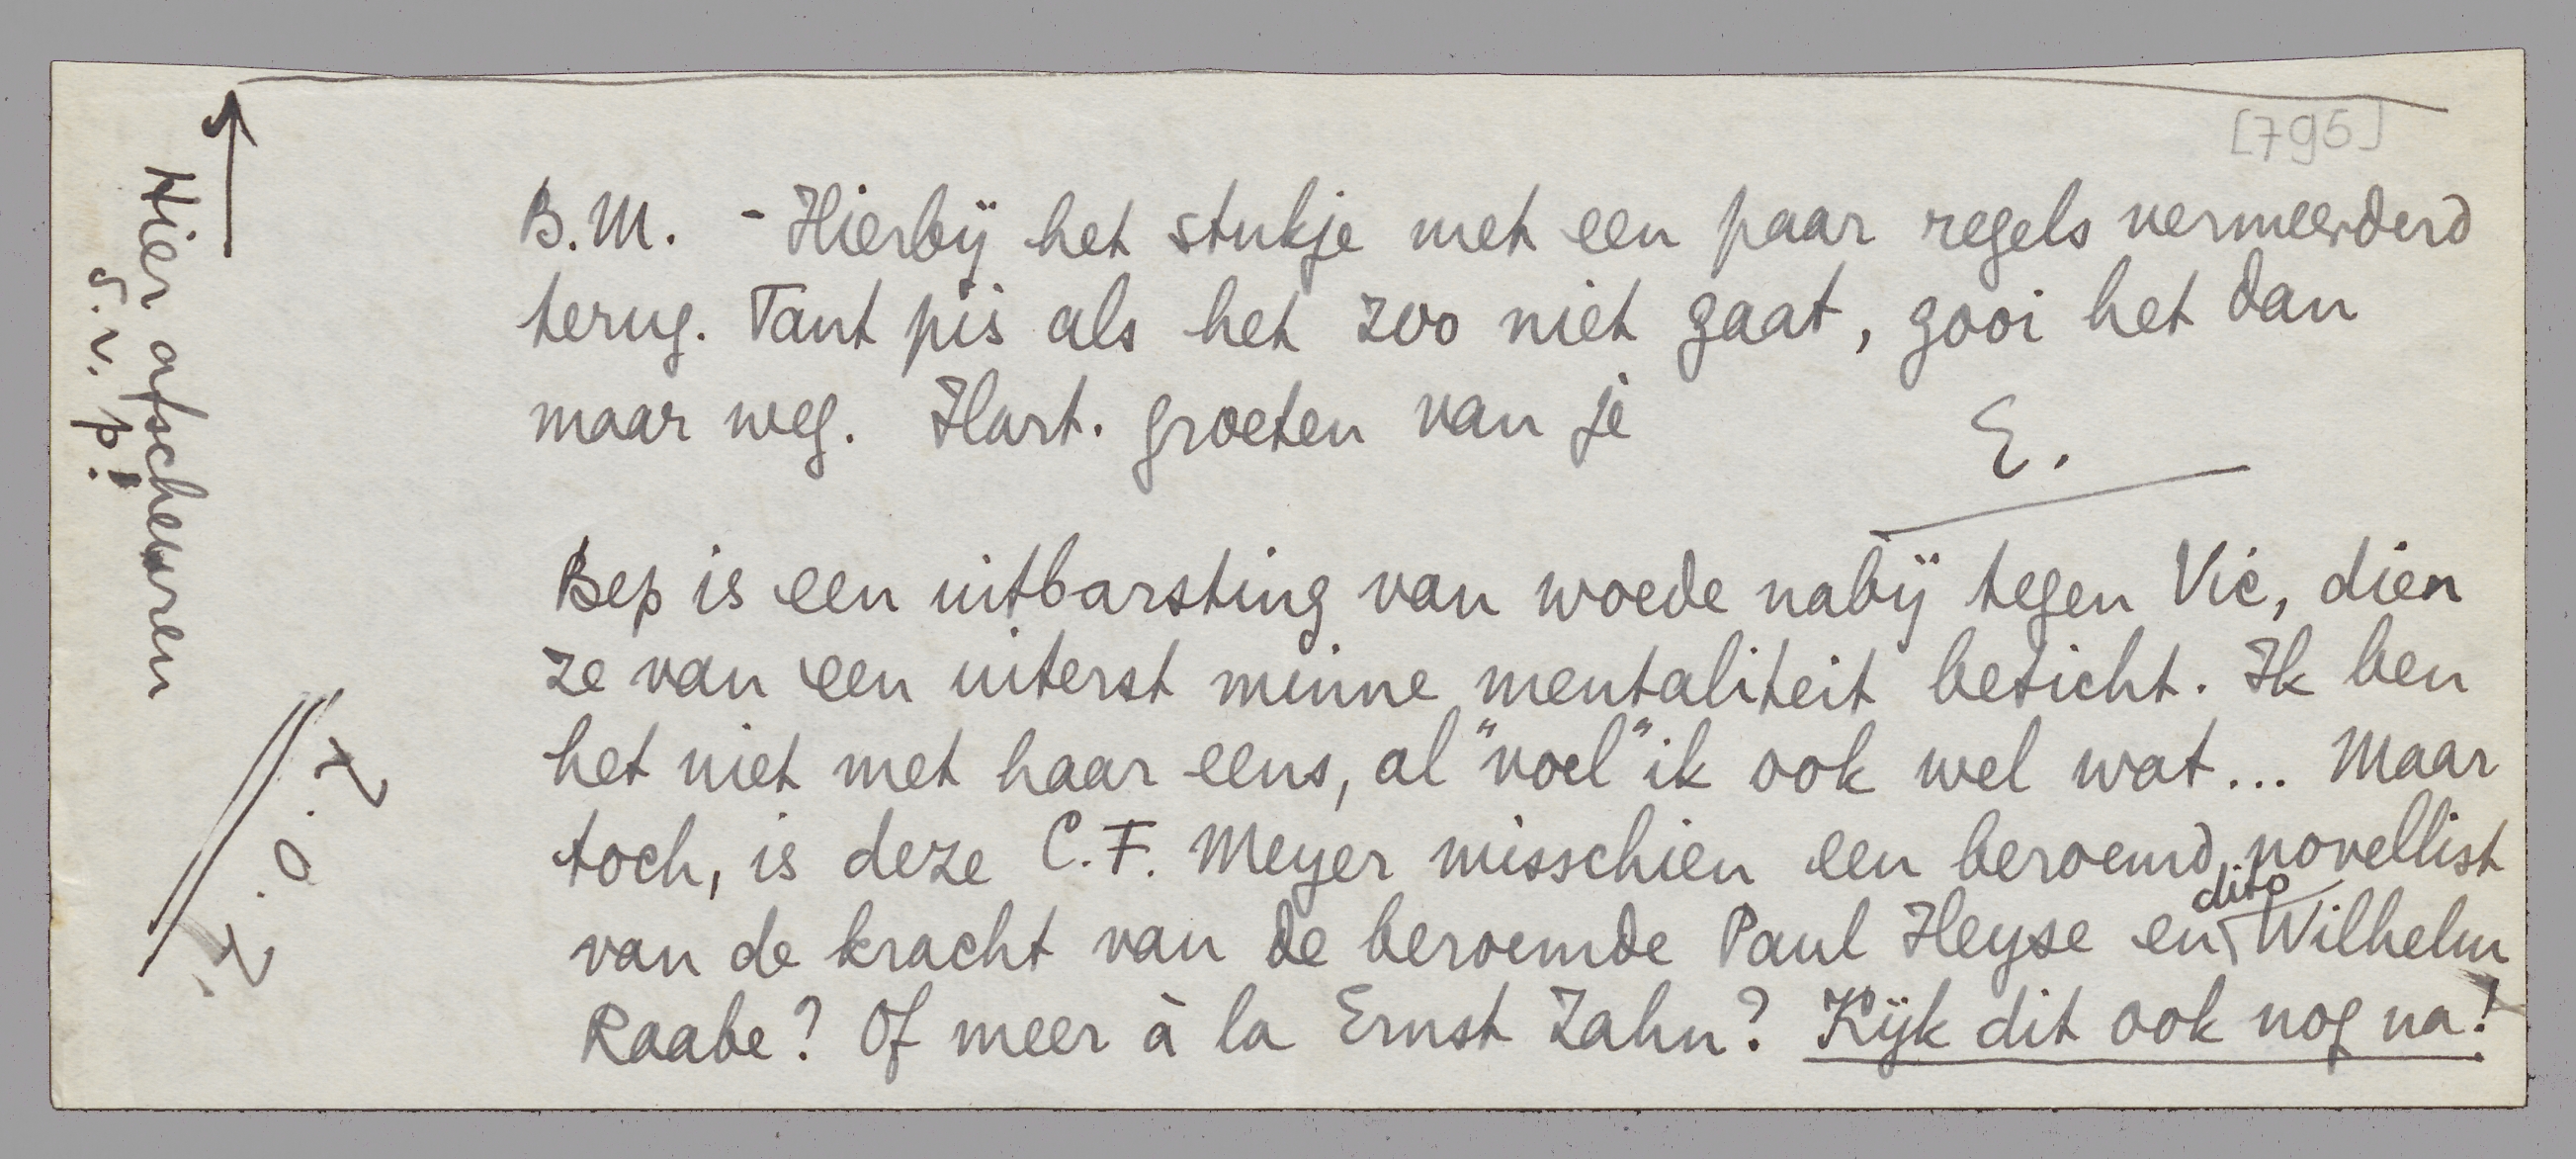 [795]
B.M. - Hierbij het stukje met een paar regels vermeerderd
terug. Tant pis als het zoo niet gaat, gooi het dan
maar weg. Hart. groeten van je
E.
Bep is een uitbarsting van woede nabij tegen Vic, dien
ze van een uiterst minne mentaliteit beticht. Ik ben
het niet met haar eens, al "voel" ik ook wel wat... Maar
toch, is deze C.F. Meyer misschien een beroemd novellist
van de kracht van de beroemde Paul Heyse en dito Wilhelm
Raabe? Of meer à la Ernst Zahn? Kijk dit ook nog na!
Hier afscheuren
s.v.p.!
Z.O.Z.